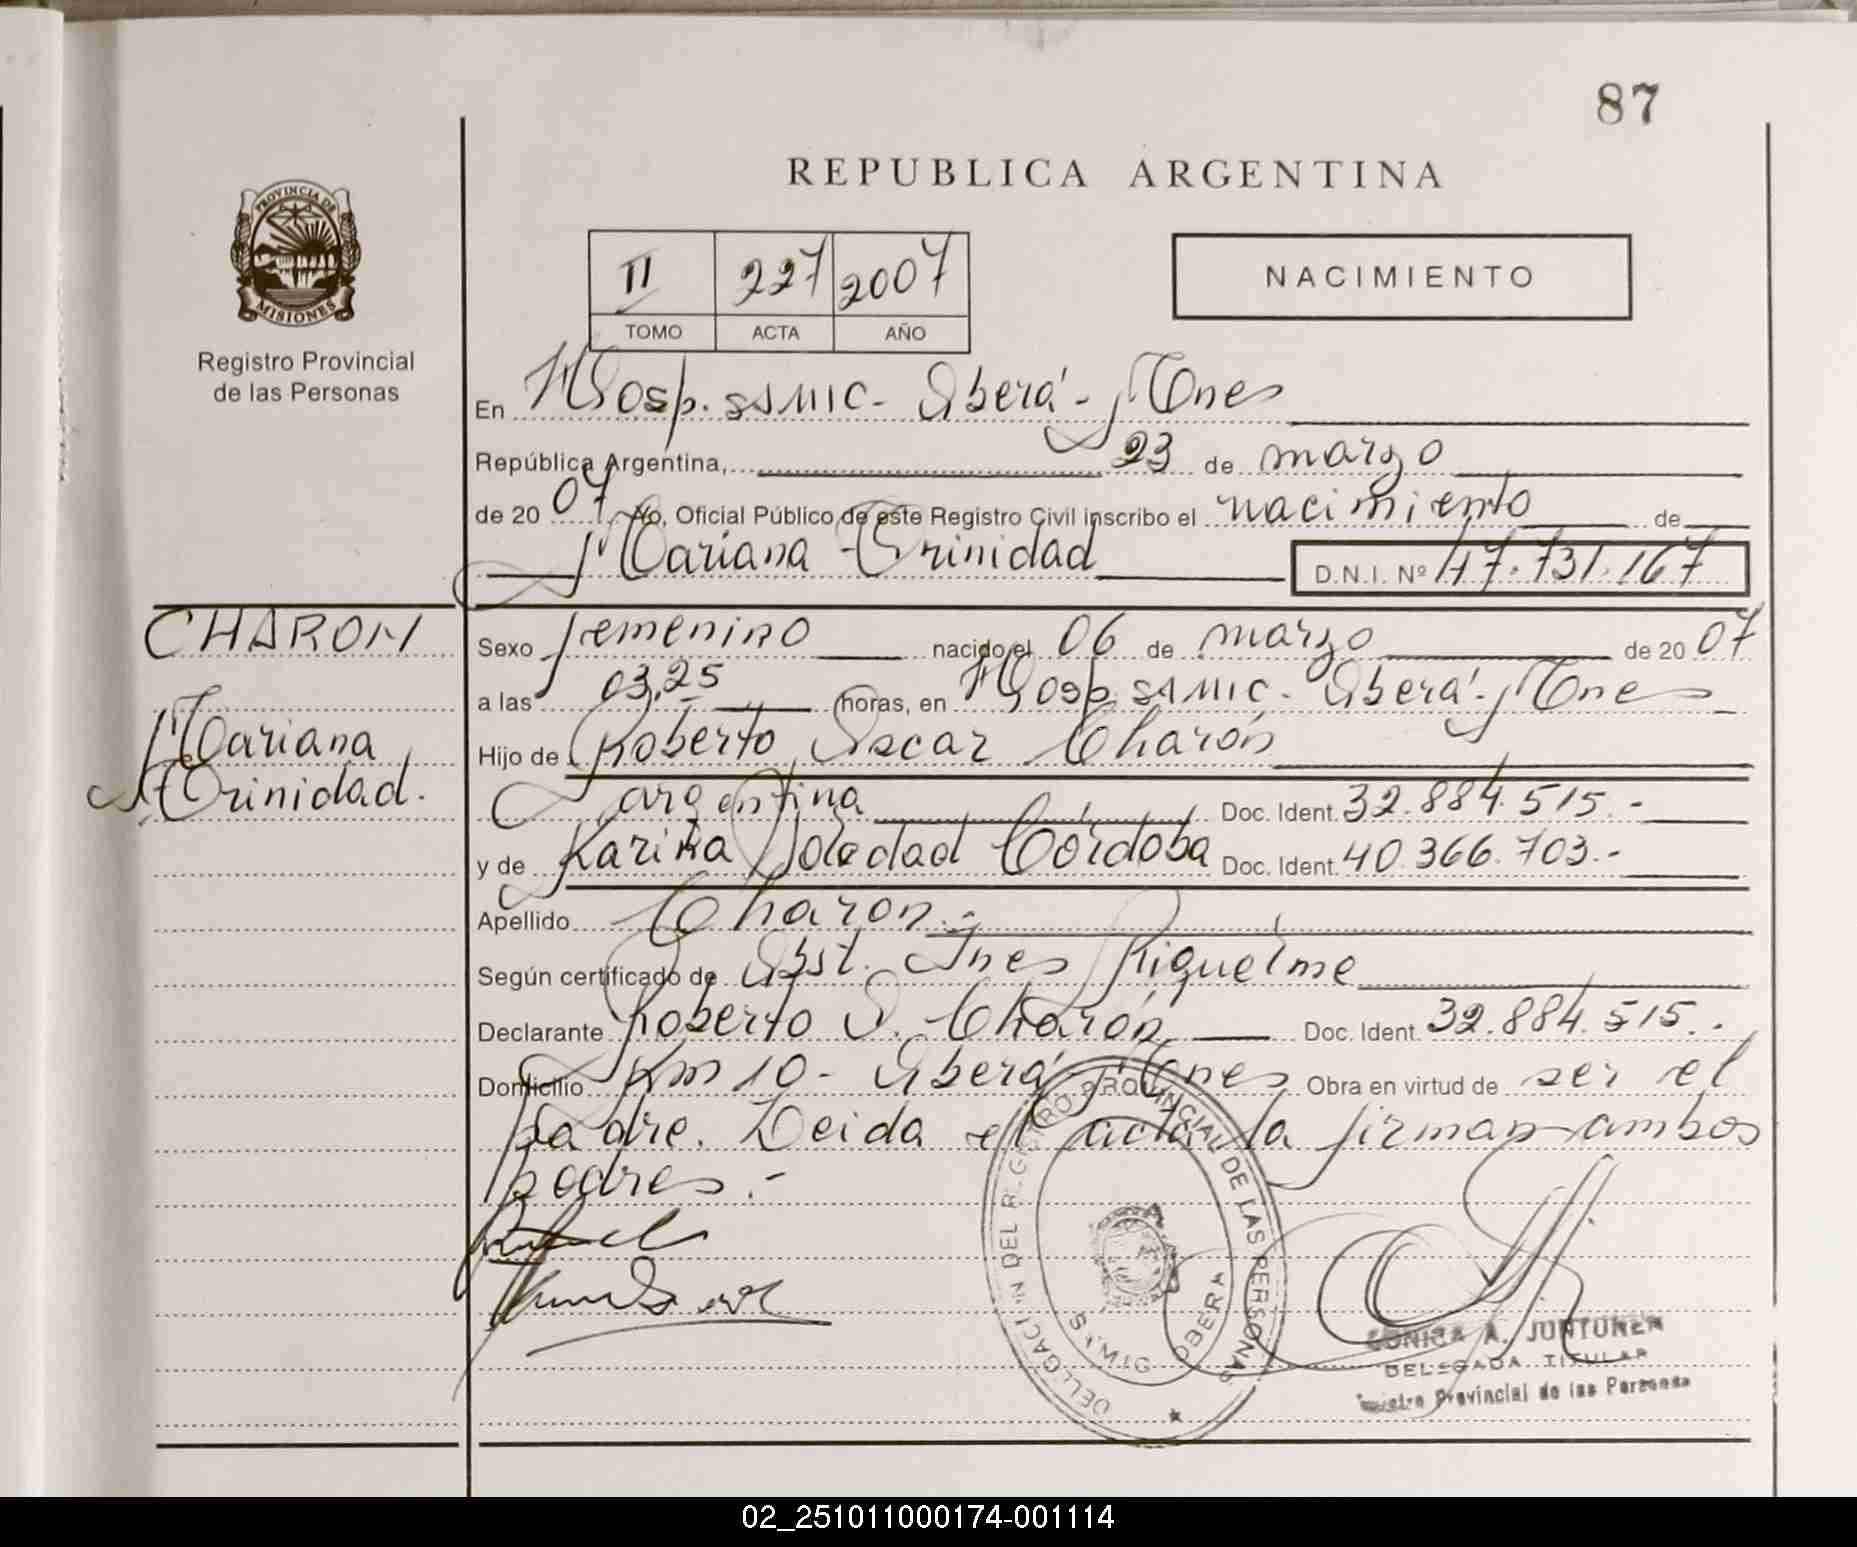 87
REPUBLICA ARGENTINA
PROVINCIA DE
MISIONES
Registro Provincial
de las Personas
II 227 2007
TOMO ACTA AÑO
NACIMIENTO
En Hosp. SAMIC - Oberá - Mnes
República Argentina, 23 de marzo
de 20 07 Yo, Oficial Público de este Registro Civil inscribo el nacimiento de
Mariana Trinidad D.N.I. Nº 47.731.167
CHARON
Sexo femenino nacido el 06 de marzo de 20 07
a las 03,25 horas, en Hosp. SAMIC - Oberá - Mnes
Mariana
Hijo de Roberto Oscar Charón
Trinidad.
argentina Doc. Ident. 32.884.515.-
y de Karina Soledad Córdoba Doc. Ident. 40.366.703.-
Apellido Charon.-
Según certificado de Obst. Ines Riquelme
Declarante Roberto O. Charón Doc. Ident. 32.884.515.-
Domicilio Km 10 - Oberá - Mnes Obra en virtud de ser el
padre. Leida el acta la firman ambos
padres.-
DELEGACION DEL REGISTRO PROVINCIAL DE LAS PERSONAS
OBERA
A. JUNTUNEN
DELEGADA TITULAR
Registro Provincial de las Personas
02_251011000174-001114